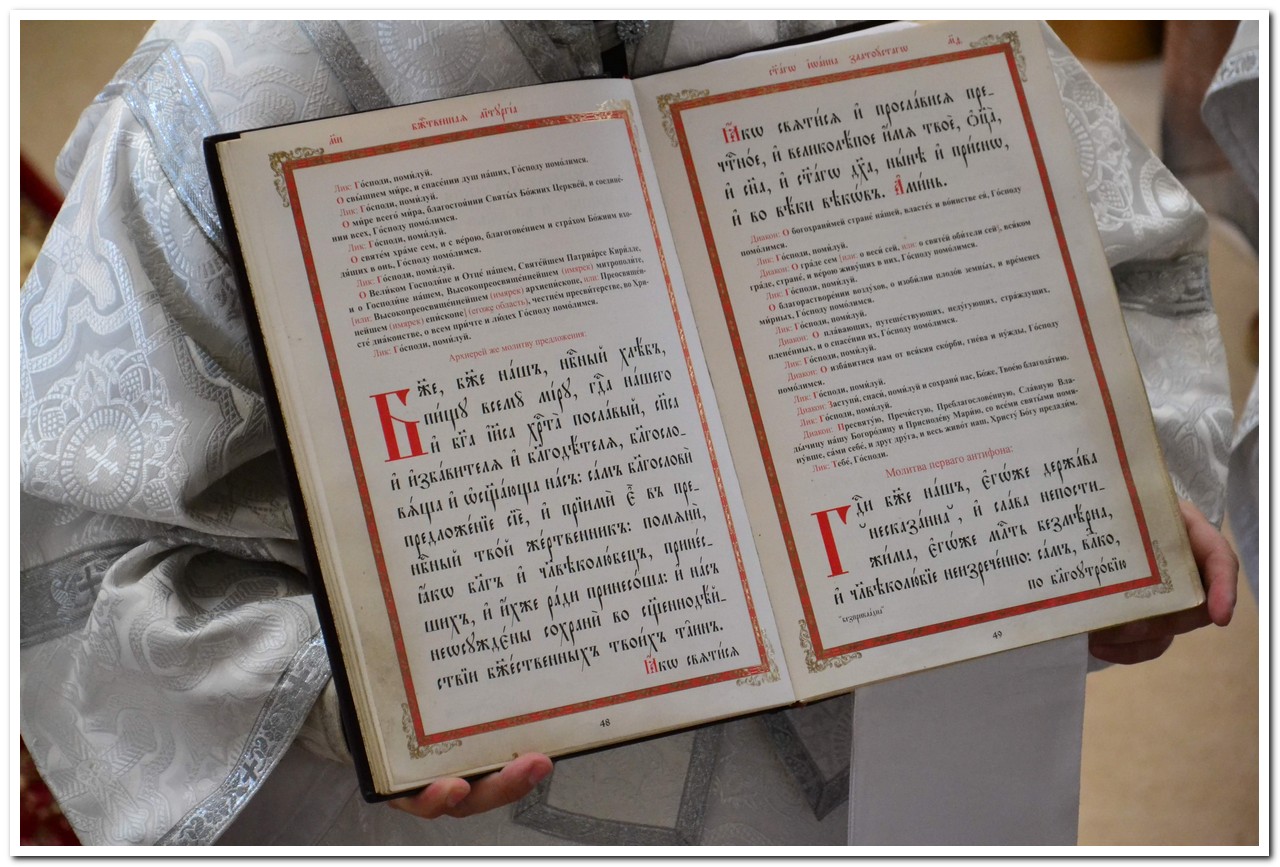 м҃и
бж҃ственнаѧ лїтꙋргі́а
Лик: Го́споди, поми́луй.
О свы́шнем ми́ре, и спасе́нии душ на́ших, Го́споду помо́лимся.
Лик: Го́споди, поми́луй.
О ми́ре всего́ ми́ра, благостоя́нии Святы́х Бо́жиих Церкве́й, и соедине́-
нии всех, Го́споду помо́лимся.
Лик: Го́споди, поми́луй.
О святе́м хра́ме сем, и с ве́рою, благогове́нием и стра́хом Бо́жиим вхо-
дя́щих в онь, Го́споду помо́лимся.
Лик: Го́споди, поми́луй.
О Вели́ком Господи́не и Отце́ на́шем, Святе́йшем Патриа́рсе Кири́лле,
и о Господи́не на́шем, Высокопреосвяще́ннейшем (имярек) митрополи́те,
[или: Высокопреосвяще́ннейшем (имярек) архиепи́скопе, или: Преосвяще́н-
нейшем (имярек) епи́скопе] (егоже область), честне́м пресви́терстве, во Хри-
сте́ диа́констве, о всем при́чте и лю́дех Го́споду помо́лимся.
Лик: Го́споди, поми́луй.
Архиерей же молитву предложения:
Бж҃е, бж҃е на́шъ, нбⷭ҇ный хлѣ́бъ,
пи́щꙋ всемꙋ̀ мі́рꙋ, гдⷭ҇а на́шего
и҆ бг҃а і҆и҃са хрⷭ҇та̀ посла́вый, сп҃са
и҆ и҆зба́вителѧ и҆ бл҃годѣ́телѧ, бл҃госло_
вѧ́ща и҆ ѡ҆сщ҃а́юща на́съ: са́мъ бл҃гословѝ
предложе́нїе сїѐ, и҆ прїимѝ є҆̀ въ пре_
нбⷭ҇ный тво́й же́ртвенникъ: помѧнѝ,
ꙗ҆́кѡ бл҃гъ и҆ чл҃вѣколю́бецъ, прине́с_
шихъ, и҆ и҆́хже ра́ди принесо́ша: и҆ на́съ
неѡсꙋждє́ны сохранѝ во сщ҃еннодѣ́й_
ствїи бж҃е́ственныхъ твои́хъ та̑инъ.
Ꙗ҆́кѡ свѧти́сѧ
48
ст҃а́гѡ і҆ѡа́нна златоꙋ́стагѡ
м҃ѳ
Ꙗ҆́кѡ свѧти́сѧ и҆ просла́висѧ пре_
чтⷭ҇но́е, и҆ великолѣ́пое и҆́мѧ твоѐ, ѻ҆ц҃а̀,
и҆ сн҃а, и҆ ст҃а́гѡ дх҃а, ны́нѣ и҆ при́снѡ,
и҆ во вѣ́ки вѣкѡ́въ. А҆ми́нь.
Диакон: О богохрани́мей стране́ на́шей, власте́х и во́инстве ея́, Го́споду
помо́лимся.
Лик: Го́споди, поми́луй.
Диакон: О гра́де сем [или: о ве́си сей, или: о святе́й оби́тели сей], вся́ком
гра́де, стране́, и ве́рою живу́щих в них, Го́споду помо́лимся.
Лик: Го́споди, поми́луй.
О благорастворе́нии возду́хов, о изоби́лии плодо́в земны́х, и вре́менех
ми́рных, Го́споду помо́лимся.
Лик: Го́споди, поми́луй.
Диакон: О пла́вающих, путеше́ствующих, неду́гующих, стра́ждущих,
плене́нных, и о спасе́нии их, Го́споду помо́лимся.
Лик: Го́споди, поми́луй.
Диакон: О изба́витися нам от вся́кия ско́рби, гне́ва и ну́жды, Го́споду
помо́лимся.
Лик: Го́споди, поми́луй.
Диакон: Заступи́, спаси́, поми́луй и сохрани́ нас, Бо́же, Твое́ю благода́тию.
Лик: Го́споди, поми́луй.
Диакон: Пресвяту́ю, Пречи́стую, Преблагослове́нную, Сла́вную Вла-
ды́чицу на́шу Богоро́дицу и Присноде́ву Мари́ю, со все́ми святы́ми помя-
ну́вше, са́ми себе́, и друг дру́га, и весь живо́т наш, Христу́ Бо́гу предади́м.
Лик: Тебе́, Го́споди.
Молитва перваго антифона:
Гдⷭ҇и бж҃е на́шъ, є҆гѡ́же держа́ва
"несказа́нна", и҆ сла́ва непости_
жи́ма, є҆гѡ́же млⷭ҇ть безмѣ́рна,
и҆ чл҃вѣколю́бїе неизрече́нно: са́мъ, влⷣко,
по бл҃гоꙋтро́бїю
"безприкла́дна"
49